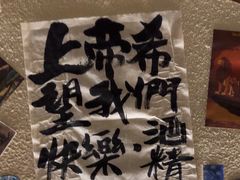 上帝希
望我們
快樂,酒精